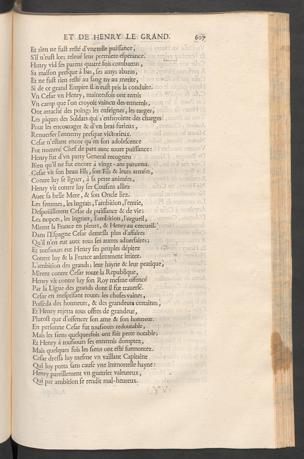 ET DE HENRY LE GRAND. 607
Et rien ne fust resté d'vne telle puissance,
S'il n'eust lors releué leur premiere esperance.
Henry vid ses parens quatre fois combatus,
Sa maison presque à bas, ses amys abatus,
Et ne fust rien resté au sang ny au merite,
Si de ce grand Empire il n'eust pris la conduite.
Vn Cesar vn Henry, maintesfois ont remis
Vn camp que l'on croyoit vaincu des ennemis,
Ont arraché des poings les enseignes, les targes,
Les piques des Soldats qui s'enfuyoient des charges
Pour les encourager & d'vn bras furieux,
Renuerser l'ennemy presque victorieux.
Cesar n'estant encor qu'en son adolescence
Fut nommé Chef de part auec toute puissance:
Henry fut d'vn party General recogneu
Bien qu'il ne fut encore à vingt-ans paruenu.
Cesar vit son beau Fils, son & leurs armées,
Contre luy se liguer, à sa perte animées,
Henry vit contre luy ses Cousins alliez
Auec sa belle Mere, & son Oncle liez.
Les femmes, les ingrats, l'ambition, l'enuie,
Despouillerent Cesar de puissance & de vie:
Les nopces, les ingrats, l'ambition, l'orgueil,
Mirent la France en pleurs, & Henry au cercueil.
Dans l'Espagne Cesar demesla plus d'affaires
Qu'il n'en eut auec tous ses autres aduersaires;
Et tousiours eut Henry ses peuples despitez
Contre luy & la France asprement irritez.
L'ambition des grands, leur hayne & leur pratique,
Mirent contre Cesar toute la Republique,
Henry vit contre luy son Roy mesme offensé
Par la Ligue des grands dont il fut trauersé.
Cesar en mesprisant toutes les choses vaines,
Posseda des honneurs, & des grandeurs certaines,
Et Henry rejetta tous offres de grandeur,
Plustost que d'offencer son ame & son honneur.
En personne Cesar fut tousiours redoutable,
Mais les siens quelquesfois ont fait perte notable:
Et Henry a tousiours ses ennemis domptez,
Mais quelques fois les siens ont esté surmontez.
Cesar dressa luy mesme vn vaillant Capitaine
Qui luy porta sans cause vne immortelle hayne:
Henry pareillement vn guerrier valeureux,
Qui par ambition se rendit mal-heureux.